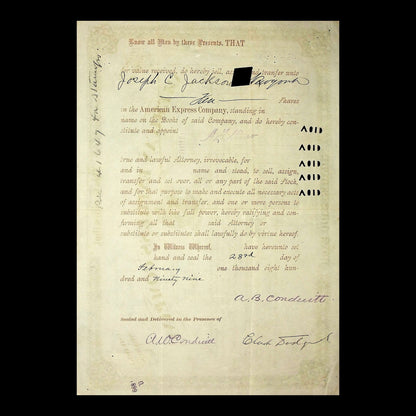 Know all Men by these Presents, THAT
for value received, do hereby sell, assign and transfer unto
Joseph C. Jackson
Ten Shares
in the American Express Company, standing in
name on the Books of said Company, and do hereby con-
stitute and appoint
true and lawful Attorney, irrevocable, for
and in name and stead, to sell, assign,
transfer and set over, all or any part of the said Stock,
and for that purpose to make and execute all necessary acts
of assignment and transfer, and one or more persons to
substitute with like full power, hereby ratifying and con-
firming all that said Attorney or
substitute or substitutes shall lawfully do by virtue hereof.
In Witness Whereof, have hereunto set
hand and seal the 23rd day of
February one thousand eight hun-
dred and Ninety nine
A. B. Conduitte
Sealed and Delivered in the Presence of
VOID
VOID
VOID
VOID
VOID